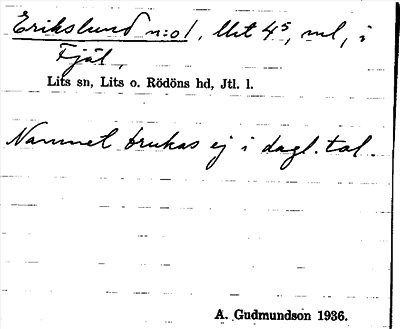 Erikslund n:o 1, lht 4⁵, ml, i
Fjäl,
Lits sn, Lits o. Rödöns hd, Jtl. l.
Namnet brukas ej i dagl. tal.
A. Gudmundson 1936.